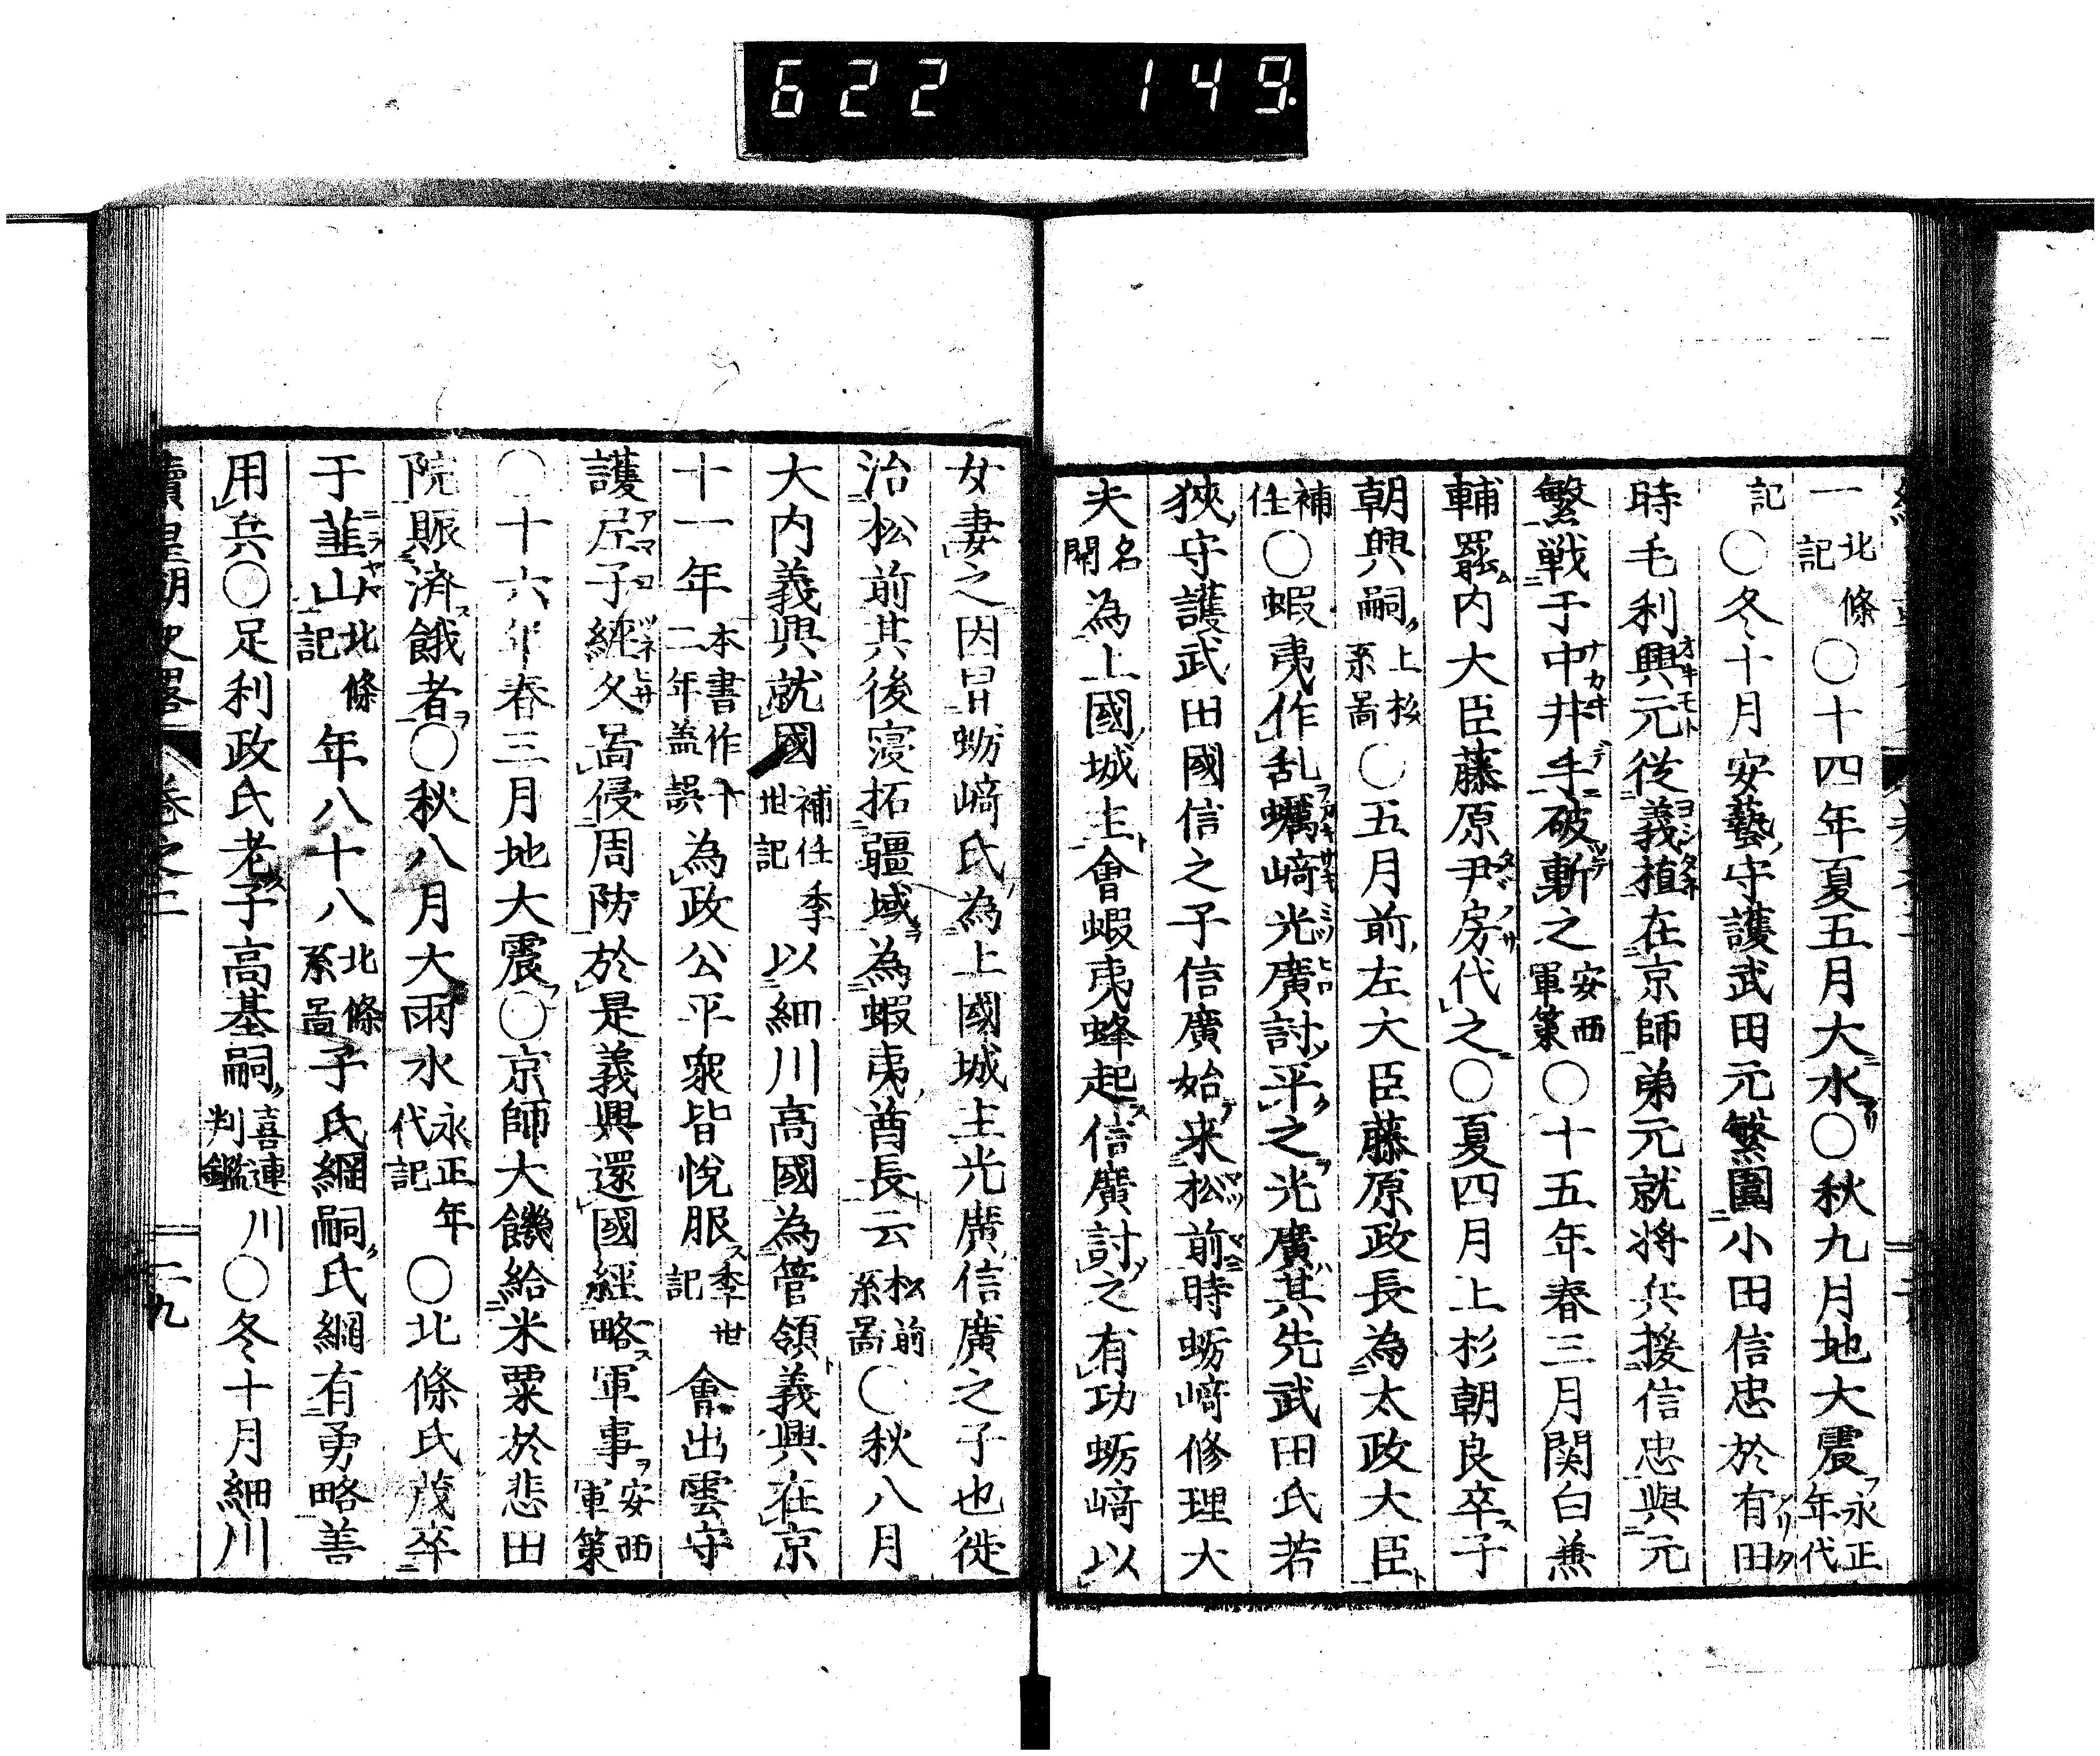 622 149.
一北條記〇十四年夏五月大水〇秋九月地大震永正年代
記〇冬十月安藝守護武田元繁圍小田信忠於有田
時毛利興元従義植在京師弟元就将兵援信忠與元
繁戦于中井手破斬之安西軍策〇十五年春三月関白兼
輔罷内大臣藤原尹房代之〇夏四月上杉朝良卒子
朝興嗣上杉系啚〇五月前左大臣藤原政長為太政大臣
補任〇蝦夷作乱蠣﨑光廣討平之光廣其先武田氏若
狹守護武田國信之子信廣始来松前時蛎﨑修理大
夫名開為上國城主會蝦夷蜂起信廣討之有功蛎﨑以
女妻之因冒蛎﨑氏為上國城主光廣信廣之子也徙
治松前其後寖拓疆域為蝦夷酋長云松前系啚〇秋八月
大内義興就國補任季世記以細川高國為管領義興在京
十一年本書作十二年盖誤為政公平衆皆悅服季世記會出雲守
護尼子經久啚侵周防於是義興還國經略軍事安西軍策
〇十六年春三月地大震〇京師大饑給米粟於悲田
院賑済餓者〇秋八月大雨水永正年代記〇北條氏茂卒
于韮山北條記年八十八北條系啚子氏綱嗣氏綱有勇略善
用兵〇足利政氏老子高基嗣喜連川判鑑〇冬十月細川
續皇朝史畧 卷之二 二九